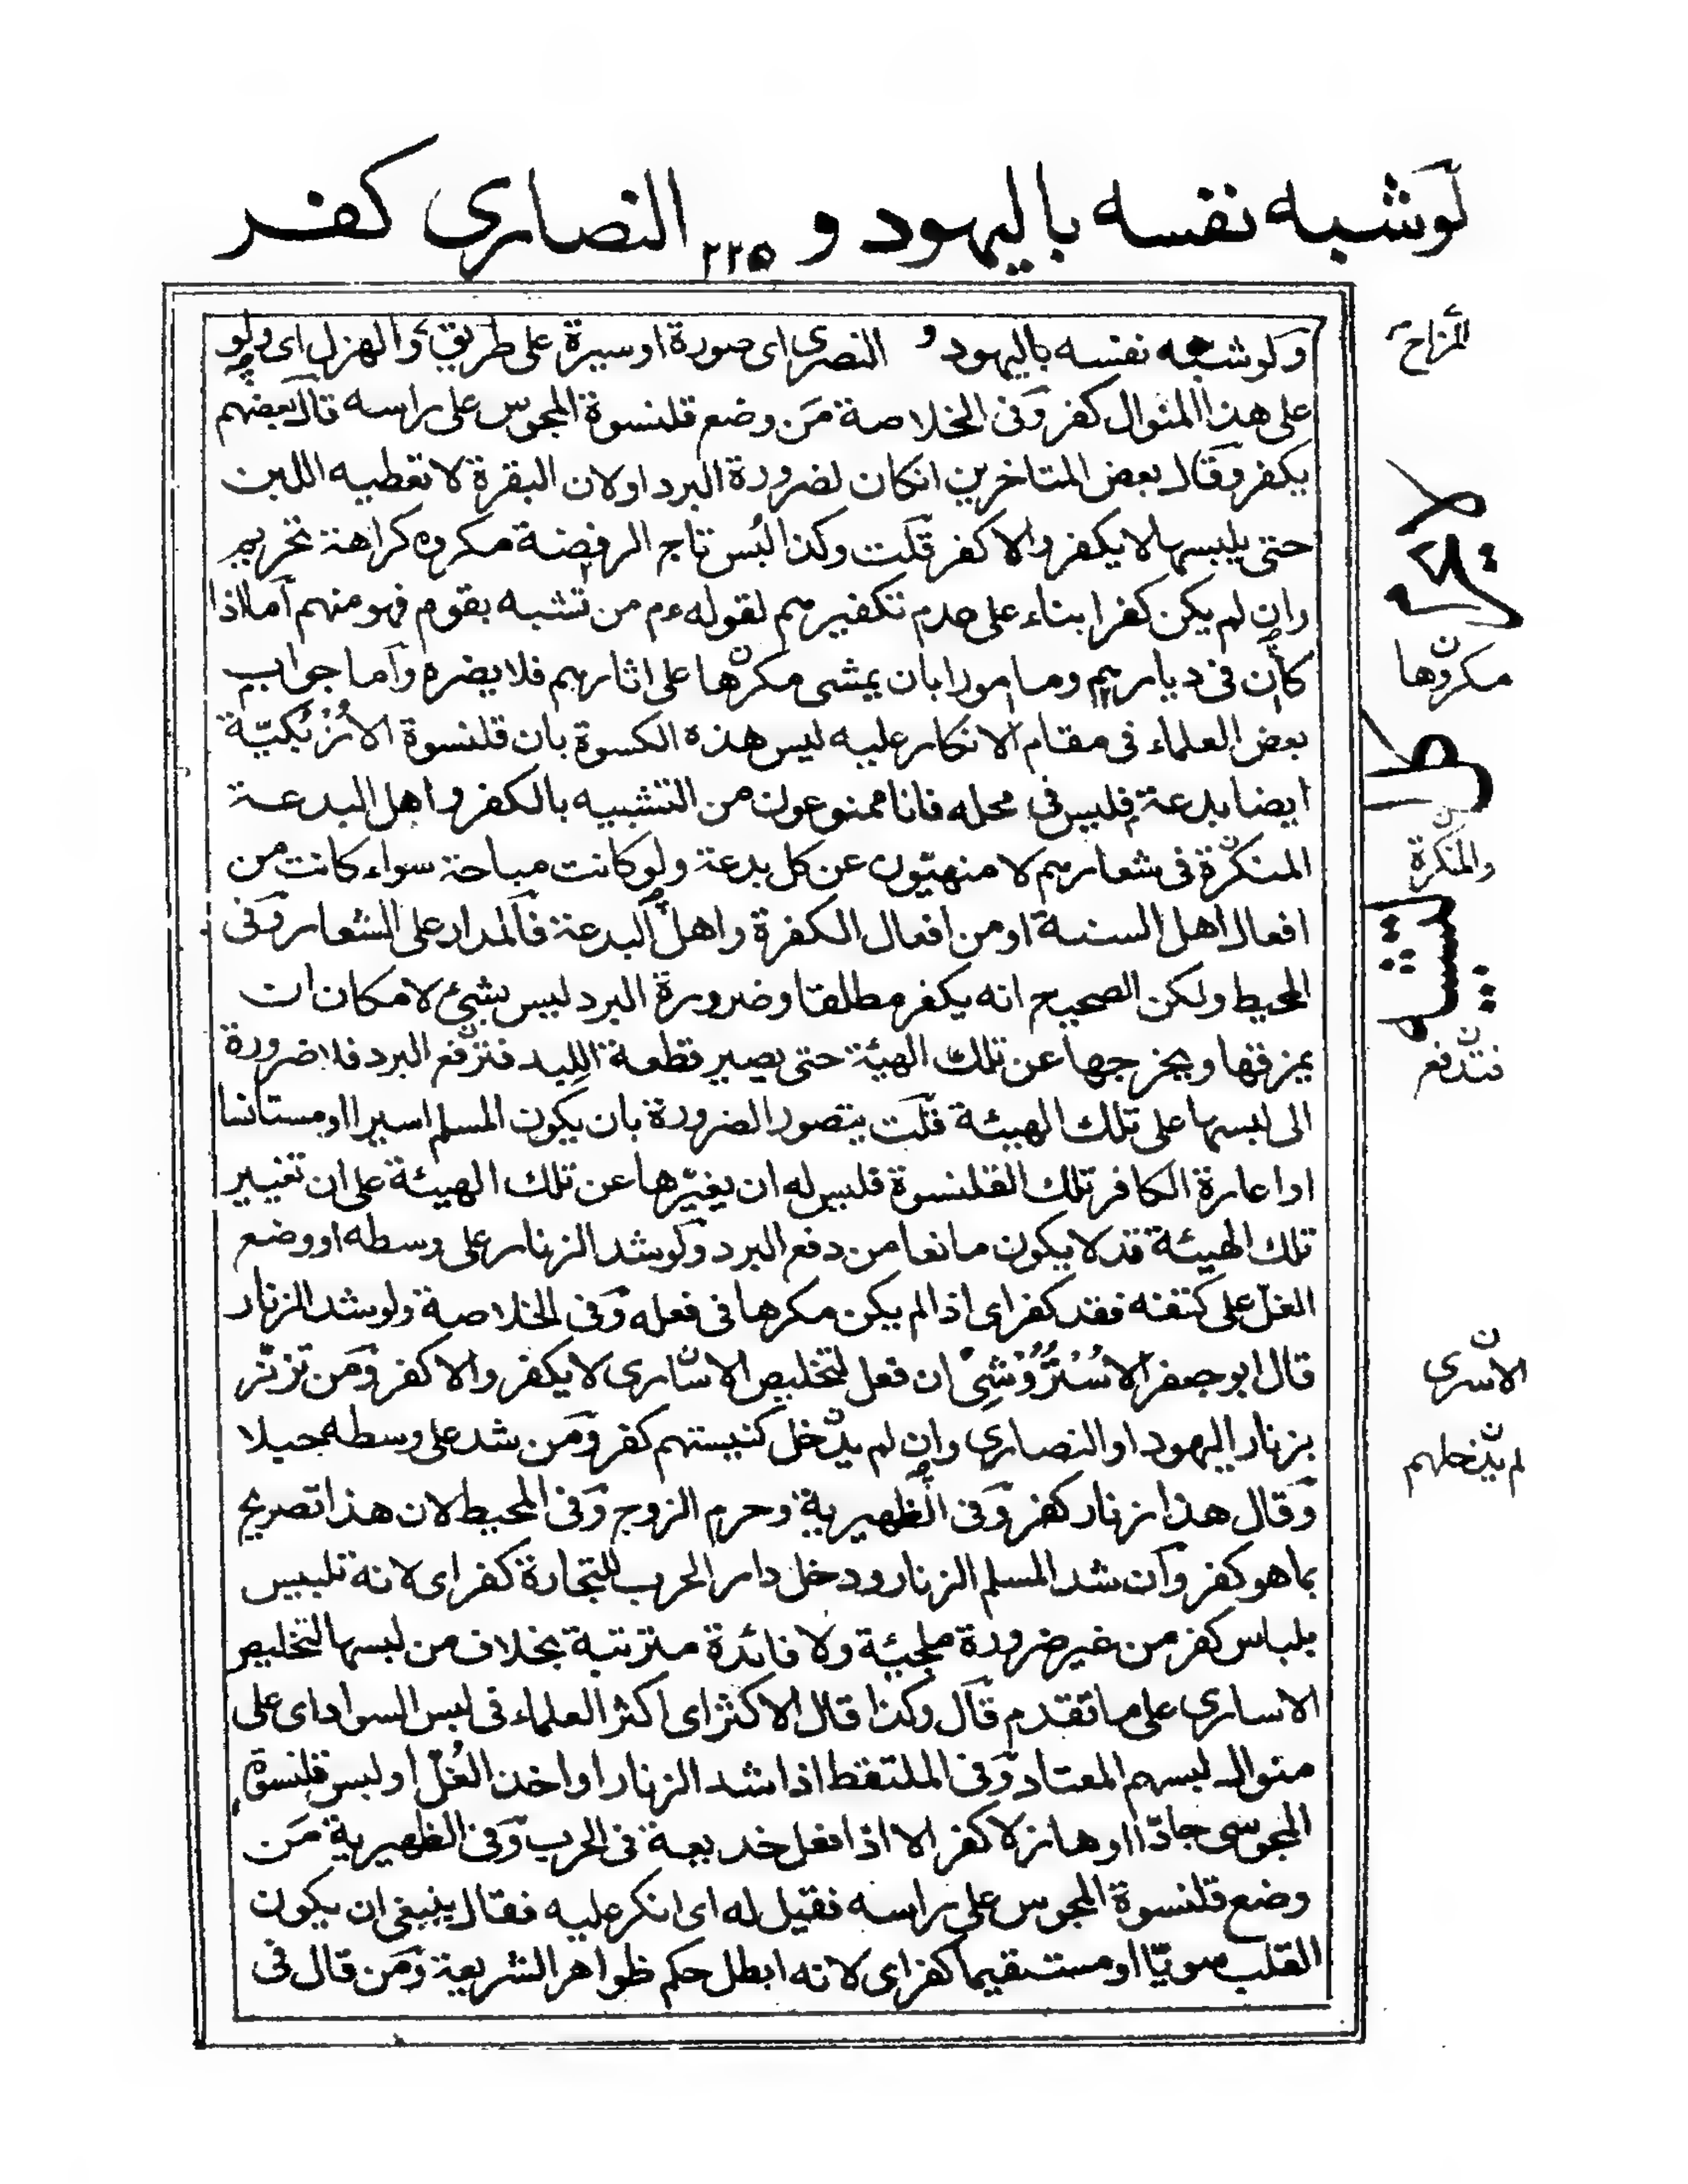 لوشبه نفسه باليهود و النصارى كفر
٢٢٥
ولو شبه نفسه باليهود و النصرى اى صورة او سيرة على طريق والهزل اى ولو
المزاح
على هذا المنوال كفر وفى الخلاصة من وضع قلنسوة المجوس على راسه قال بعضهم
يكفر وقال بعض المتاخرين انكان لضرورة البرد او لان البقرة لا تعطيه اللبن
حتى يلبسها لا يكفر والا كفر قلت وكذا لبس تاج الرفضة مكروه كراهة تحريم
وان لم يكن كفرا بناء على عدم تكفيرهم لقوله عم من تشبه بقوم فهو منهم اما اذا
كان فى ديارهم ومامورا بان يمشى مكرها على اثارهم فلا يضره واما جواب
مكروها
بعض العلماء فى مقام الانكار عليه لبس هذه الكسوة بان قلنسوة الأُزْبُكيّة
ايضا بدعة فليس فى محله فانا ممنوعون من التشبيه بالكفر واهل البدعة
المنكرة فى شعارهم لا منهيّون عن كل بدعة ولو كانت مباحة سواء كانت من
والمنكرة
افعال اهل السنة او من افعال الكفرة واهل البدعة فالمدار على الشعار وفى
المحيط ولكن الصحيح انه يكفر مطلقا وضرورة البرد ليس بشئ لامكان ان
يمزقها ويخرجها عن تلك الهيئة حتى يصير قطعة اللبد فتزفع البرد فلا ضرورة
فتدفع
الى لبسها على تلك الهيئة قلت يتصور الضرورة بان يكون المسلم اسيرا او مستانسا
او اعارة الكافر تلك القلنسوة فليس له ان يغيّرها عن تلك الهيئة على ان تغيير
تلك الهيئة قد لا يكون مانعا من دفع البرد ولو شد الزنار على وسطه او وضع
الغل على كتفنه فقد كفر اى اذا لم يكن مكرها فى فعله وفى الخلاصة ولو شد الزنار
قال ابو جعفر الاسُتْرُوْشِى ان فعل لتخليص الاسارى لا يكفر والا كفر ومن تزنّر
الاسرى
بزنار اليهود او النصارى وان لم يدخل كنيستهم كفر ومن شد على وسطه حبلا
لم يدخلهم
وقال هذا زنار كفر وفى الظهيرية وحرم الزوج وفى المحيط لان هذا تصريح
بما هو كفر وان شد المسلم الزنار ودخل دار الحرب للتجارة كفر اى لانه تلبيس
بلباس كفر من غير ضرورة ملجئة ولا فائدة مترتبة بخلاف من لبسها لتخليص
الاسارى على ما تقدم قال وكذا قال الاكثر اى اكثر العلماء فى لبس السواد اى على
منوال لبسهم المعتاد وفى الملتقط اذا شد الزنار او اخذ الغُلّ او لبس قلنسوة
المجوسى جادّا او هازلا كفر الا اذا فعل خديعة فى الحرب وفى الظهيرية من
وضع قلنسوة المجوس على راسه فقيل له اى انكر عليه فقال ينبغى ان يكون
القلب سويّا او مستقيما كفر اى لانه ابطل حكم ظواهر الشريعة ومن قال فى